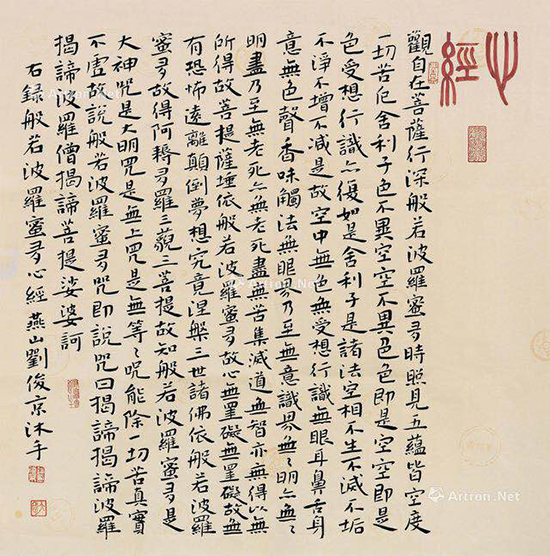 心經
觀自在菩薩行深般若波羅蜜多時照見五蘊皆空度
一切苦厄舍利子色不異空空不異色色即是空空即是
色受想行識亦復如是舍利子是諸法空相不生不滅不垢
不淨不增不減是故空中無色無受想行識無眼耳鼻舌身
意無色聲香味觸法無眼界乃至無意識界無〻明亦無〻
明盡乃至無老死亦無老死盡無苦集滅道無智亦無得以無
所得故菩提薩埵依般若波羅蜜多故心無罣礙無罣礙故無
有恐怖遠離顛倒夢想究竟涅槃三世諸佛依般若波羅
蜜多故得阿耨多羅三藐三菩提故知般若波羅蜜多是
大神咒是大明咒是無上咒是無等〻咒能除一切苦真實
不虛故說般若波羅蜜多咒即說咒曰揭諦揭諦波羅
揭諦波羅僧揭諦菩提娑婆訶
右錄般若波羅蜜多心經燕山劉俊京沐手
Artron.Net
Artron.Net